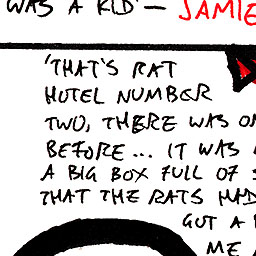 WAS A KID' — JAMIE
'THAT'S RAT
HOTEL NUMBER
TWO, THERE WAS
BEFORE... IT WAS
A BIG BOX FULL OF
THAT THE RATS HAD
GOT A
ME